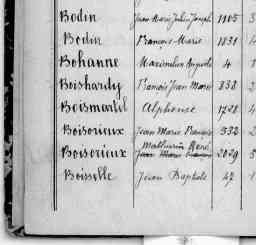 Bodin Jean Marie Julien Joseph 1105 3
Bodin François Marie 1831 4
Bohanne Maximilien Auguste 4 1
Boishardy François Jean Marie 838 2
Boismartel Alphonse 1728 4
Boisorieux Jean Marie François 332 2
Mathurin René
Boisorieux Jean Marie François 2029 5
Boisselle Jean Baptiste 42 1